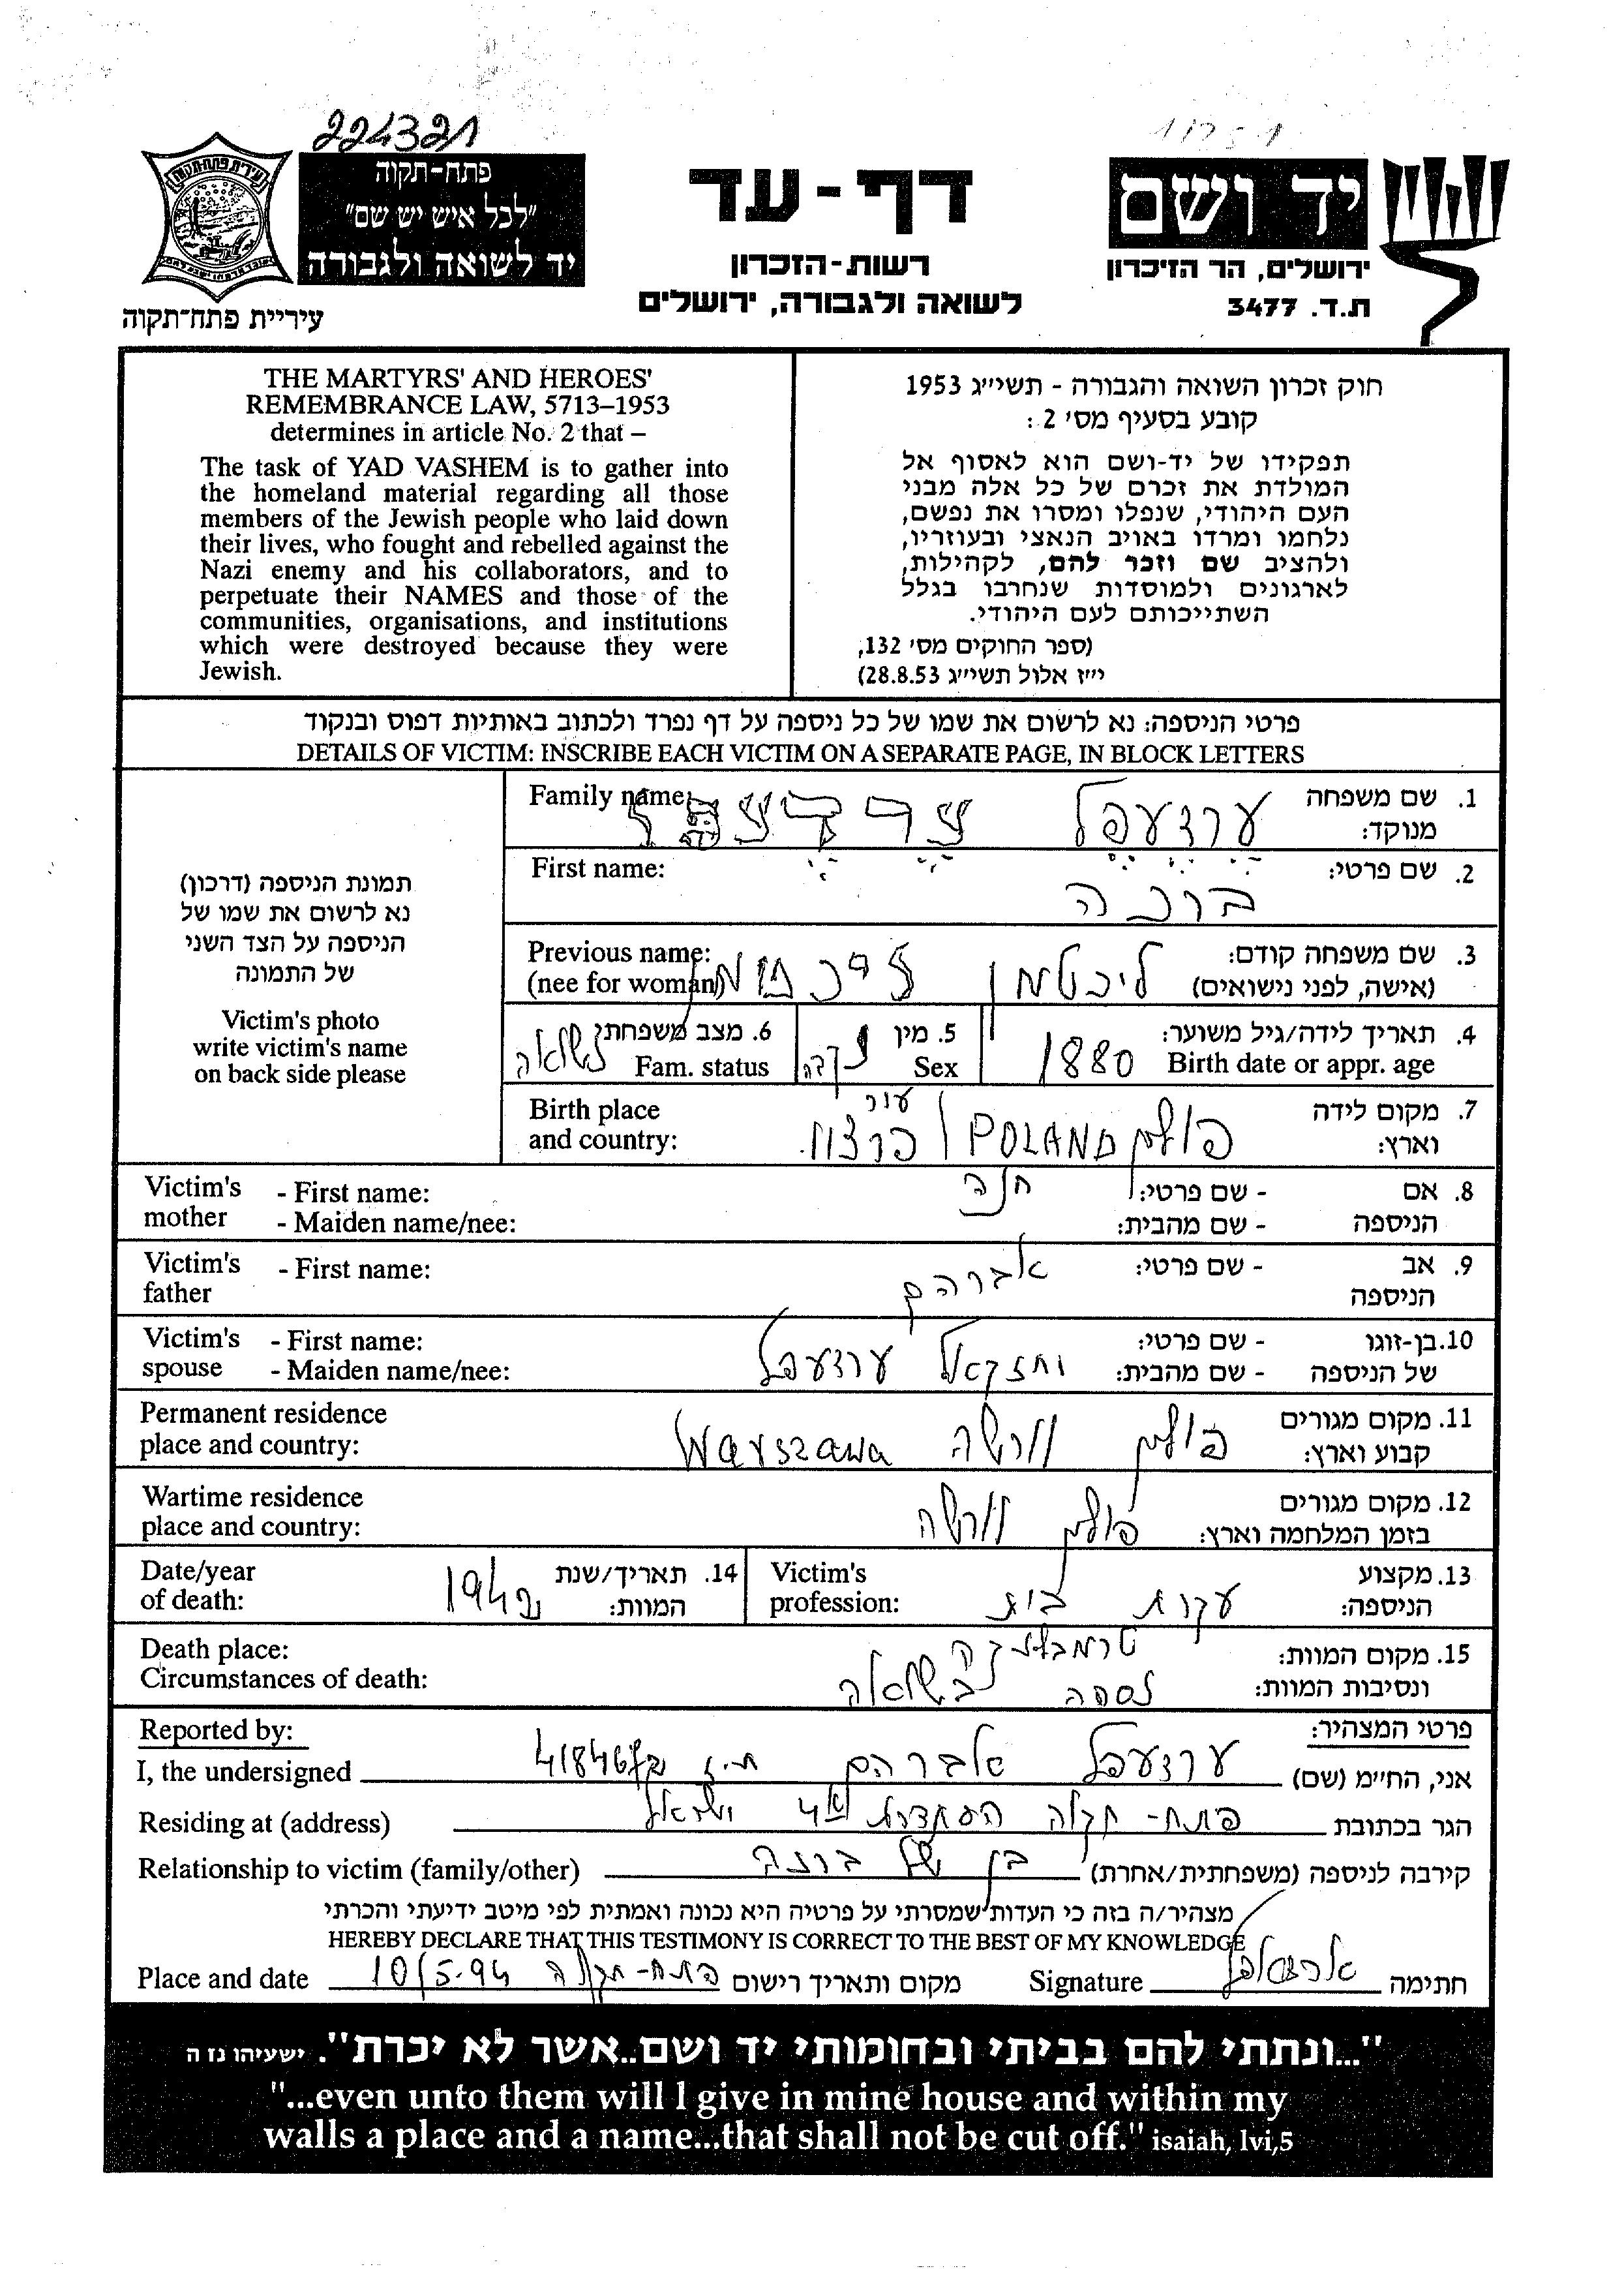 224321
פתח-תקוה
"לכל איש יש שם"
יד לשואה ולגבורה
עיריית פתח-תקוה
דף-עד
רשות-הזכרון
לשואה ולגבורה, ירושלים
יד ושם
ירושלים, הר הזיכרון
ת.ד. 3477
THE MARTYRS' AND HEROES'
REMEMBRANCE LAW, 5713–1953
determines in article No. 2 that –
The task of YAD VASHEM is to gather into
the homeland material regarding all those
members of the Jewish people who laid down
their lives, who fought and rebelled against the
Nazi enemy and his collaborators, and to
perpetuate their NAMES and those of the
communities, organisations, and institutions
which were destroyed because they were
Jewish.
חוק זכרון השואה והגבורה - תשי״ג 1953
קובע בסעיף מס׳ 2:
תפקידו של יד-ושם הוא לאסוף אל
המולדת את זכרם של כל אלה מבני
העם היהודי, שנפלו ומסרו את נפשם,
נלחמו ומרדו באויב הנאצי ובעוזריו,
ולהציב שם וזכר להם, לקהילות,
לארגונים ולמוסדות שנחרבו בגלל
השתייכותם לעם היהודי.
(ספר החוקים מס׳ 132,
י״ז אלול תשי״ג 28.8.53)
פרטי הניספה: נא לרשום את שמו של כל ניספה על דף נפרד ולכתוב באותיות דפוס ובנקוד
DETAILS OF VICTIM: INSCRIBE EACH VICTIM ON A SEPARATE PAGE, IN BLOCK LETTERS
תמונת הניספה (דרכון)
נא לרשום את שמו של
הניספה על הצד השני
של התמונה
Victim's photo
write victim's name
on back side please
Family name:
1. שם משפחה
מנוקד:
First name:
2. שם פרטי:
ברכה
Previous name:
(nee for woman)
3. שם משפחה קודם:
(אישה, לפני נישואים)
ליכטמן
4. תאריך לידה/גיל משוער:
Birth date or appr. age
1880
5. מין
Sex
נקבה
6. מצב משפחתי
Fam. status
נשואה
Birth place
and country:
7. מקום לידה
וארץ:
פולין POLAND
Victim's mother - First name:
- Maiden name/nee:
8. אם הניספה - שם פרטי:
- שם מהבית:
חנה
Victim's father - First name:
9. אב הניספה - שם פרטי:
אברהם
Victim's spouse - First name:
- Maiden name/nee:
10. בן-זוגו של הניספה - שם פרטי:
- שם מהבית:
יחזקאל ערצעפל
Permanent residence
place and country:
11. מקום מגורים
קבוע וארץ:
פולין וורשה Warszawa
Wartime residence
place and country:
12. מקום מגורים
בזמן המלחמה וארץ:
פולין וורשה
Victim's
profession:
13. מקצוע
הניספה:
עקרת בית
Date/year
of death:
14. תאריך/שנת
המוות:
1942
Death place:
Circumstances of death:
15. מקום המוות:
ונסיבות המוות:
טרמבלינקה
נספה בשואה
Reported by:
פרטי המצהיר:
I, the undersigned
אני, החי״מ (שם) ערצעפל אברהם ת.ז
Residing at (address)
הגר בכתובת פתח-תקוה ההסתדרות ישראל
Relationship to victim (family/other)
קירבה לניספה (משפחתית/אחרת) בן של ברכה
מצהיר/ה בזה כי העדות שמסרתי על פרטיה היא נכונה ואמתית לפי מיטב ידיעתי והכרתי
HEREBY DECLARE THAT THIS TESTIMONY IS CORRECT TO THE BEST OF MY KNOWLEDGE
Place and date
מקום ותאריך רישום פתח-תקוה 10/5.94
Signature
חתימה
"...ונתתי להם בביתי ובחומותי יד ושם..אשר לא יכרת". ישעיהו נז ה
"...even unto them will I give in mine house and within my
walls a place and a name...that shall not be cut off." isaiah, lvi,5